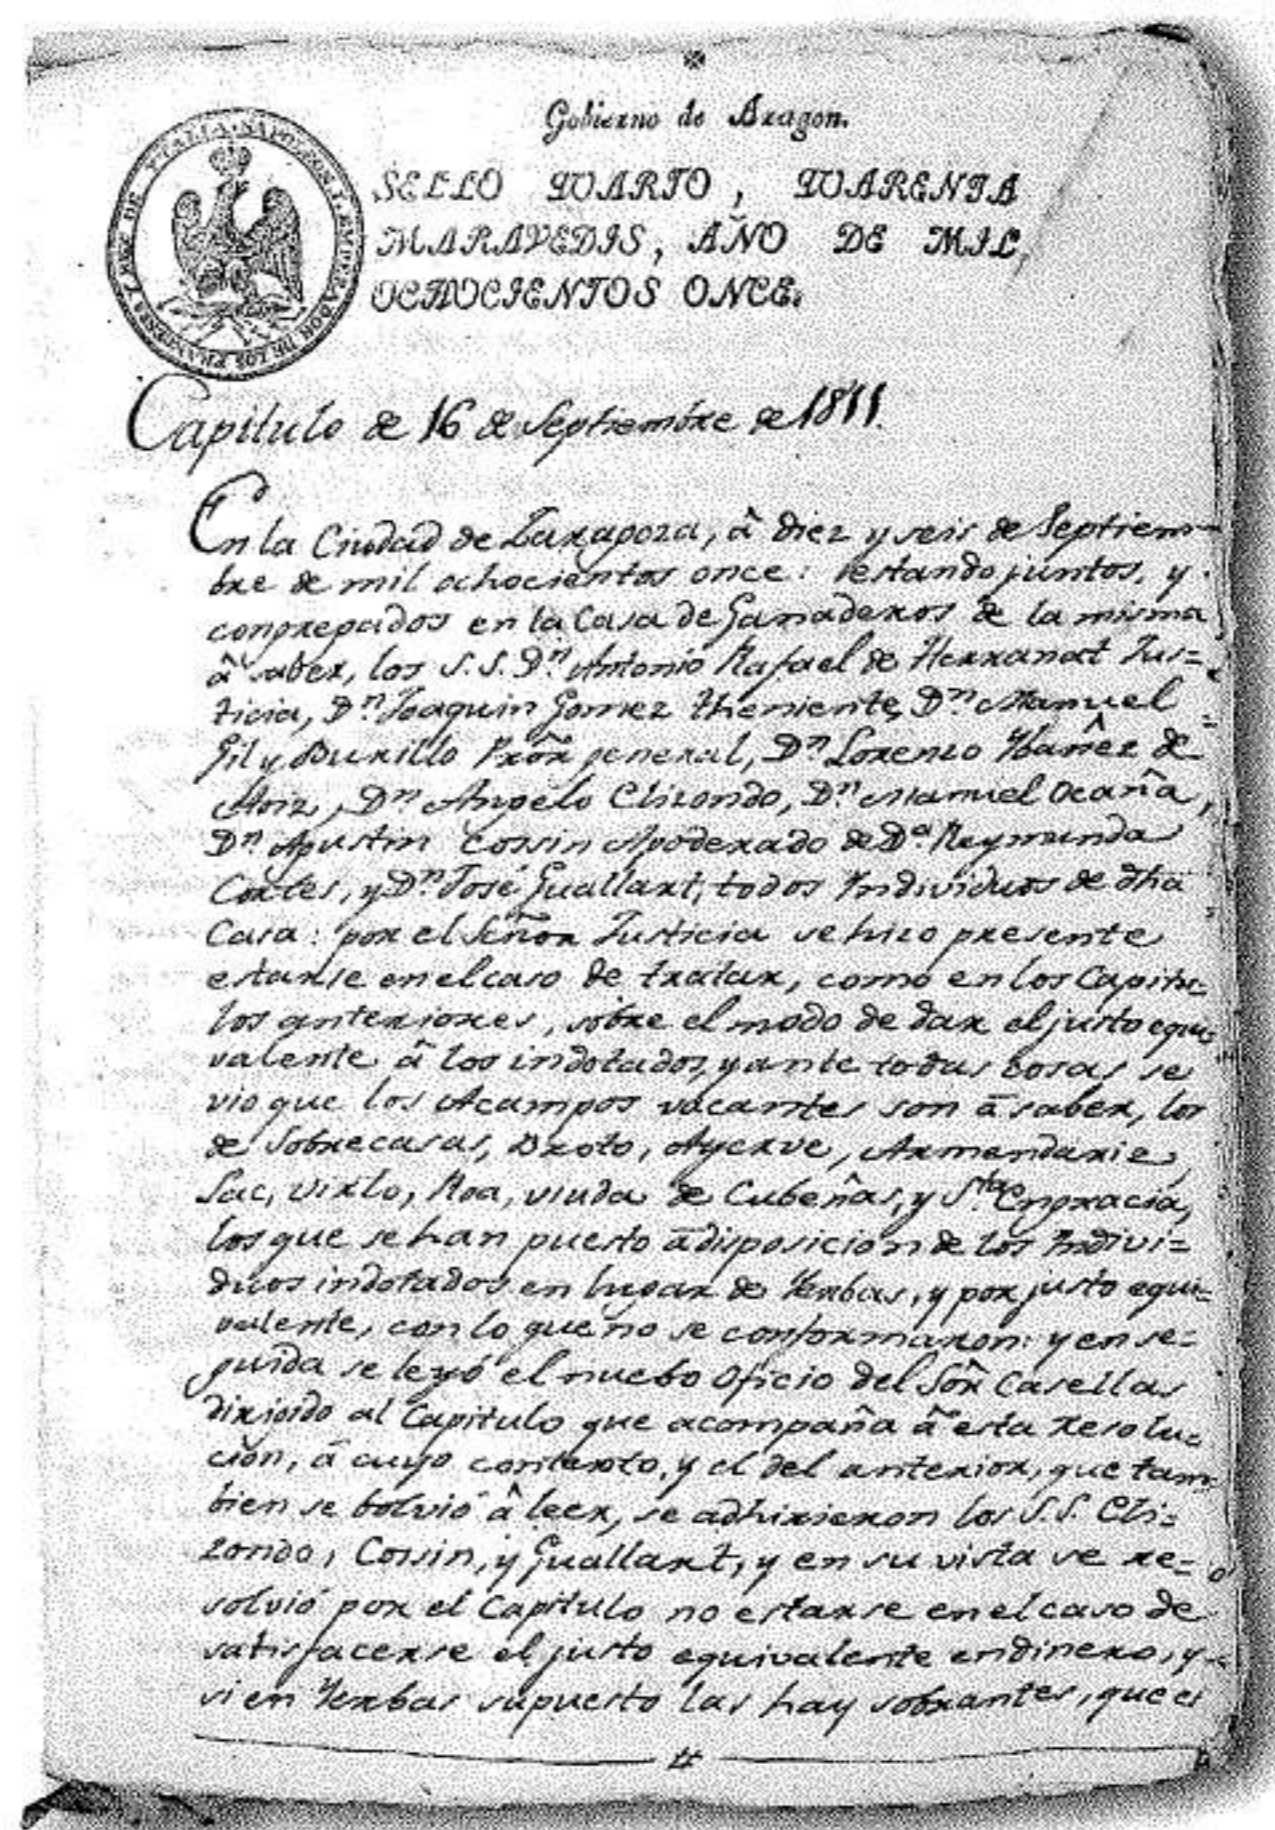 Gobierno de Aragon.
SELLO QUARTO, QUARENTA
MARAVEDIS, AÑO DE MIL
OCHOCIENTOS ONCE.
NAPOLEON I. EMPERADOR DE LOS FRANCESES Y REY DE YTALIA
Capitulo de 16 de Septiembre de 1811.
En la Ciudad de Zaragoza, â diez y seis de Septiem-
bre de mil ochocientos once: estando juntos, y
congregados en la Casa de Ganaderos de la misma
â saber, los S.S. Dn. Antonio Rafael de Herranat Jus=
ticia, Dn. Joaquin Gomez Theniente, Dn. Manuel
Gil y Burillo Prôr general, Dn. Lorenzo Ybañez de
Aoiz, Dn. Angelo Elizondo, Dn. Manuel Ocaña,
Dn. Agustin Cossin Apoderado de Da. Reymunda
Cortes, y Dn. José Guallart, todos Yndividuos de dha
Casa: por el Señor Justicia se hizo presente
estarse en el caso de tratar, como en los Capitu=
los anteriores, sobre el modo de dar el justo equi=
valente â los indotados, y ante todas cosas se
vio que los Acampos vacantes son â saber, los
de Sobrecasas, Broto, Ayerve, Armendarie,
Sac, Virto, Roa, viuda de Cubeñas, y Sta. Engracia,
los que se han puesto â disposicion de los Yndivi=
duos indotados en lugar de Yerbas, y por justo equi=
valente, con lo que no se conformaron: y en se=
guida se leyó el nuebo Oficio del Sôr Casellas
dirigido al Capitulo que acompaña â esta resolu=
cion, â cuyo contexto, y el del anterior, que tam=
bien se bolvió â leer, se adhirieron los S.S. Eli=
zondo, Cossin, y Guallart, y en su vista se re=
solvió por el Capitulo no estarse en el caso de
satisfacerse el justo equivalente en dinero, y
si en Yerbas supuesto las hay sobrantes, que es